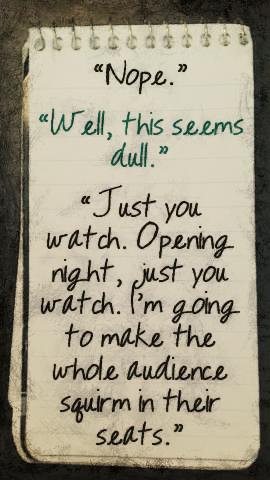 “Nope.”
“Well, this seems
dull.”
“Just you
watch. Opening
night, just you
watch. I’m going
to make the
whole audience
squirm in their
seats.”